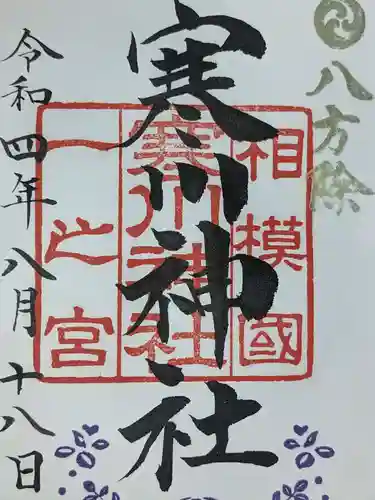 八方除
寒川神社
相模國
寒川神社
一之宮
令和四年八月十八日